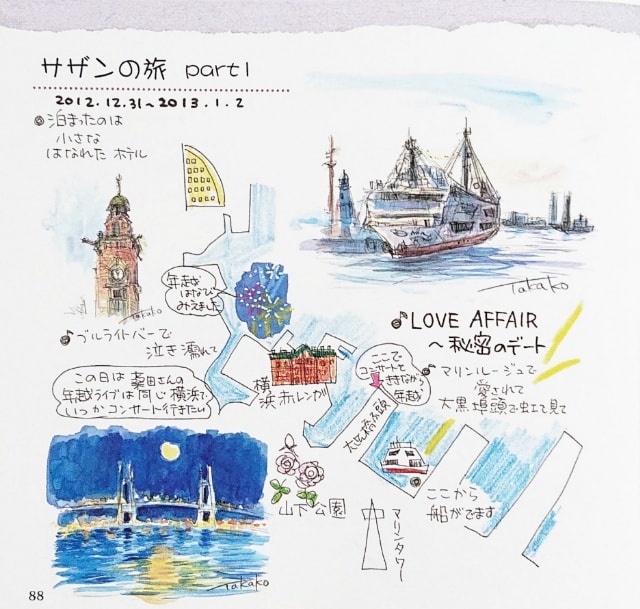 サザンの旅 part1
2012.12.31～2013.1.2
◎泊まったのは
小さな
はなれた ホテル
Takako
年越
はなびが
みえました
♪ブルーライトバーで
泣き濡れて
この日は 桑田さんの
年越ライブは同じ横浜で
いつかコンサート行きたい
横浜赤レンガ
ここで
コンサートを
ききながら
年越
♪LOVE AFFAIR
～秘密のデート
Takako
♪マリンルージュで
愛されて
大黒埠頭で虹を見て
大さん橋
ここから
船がでます
山下公園
マリンタワー
Takako
88